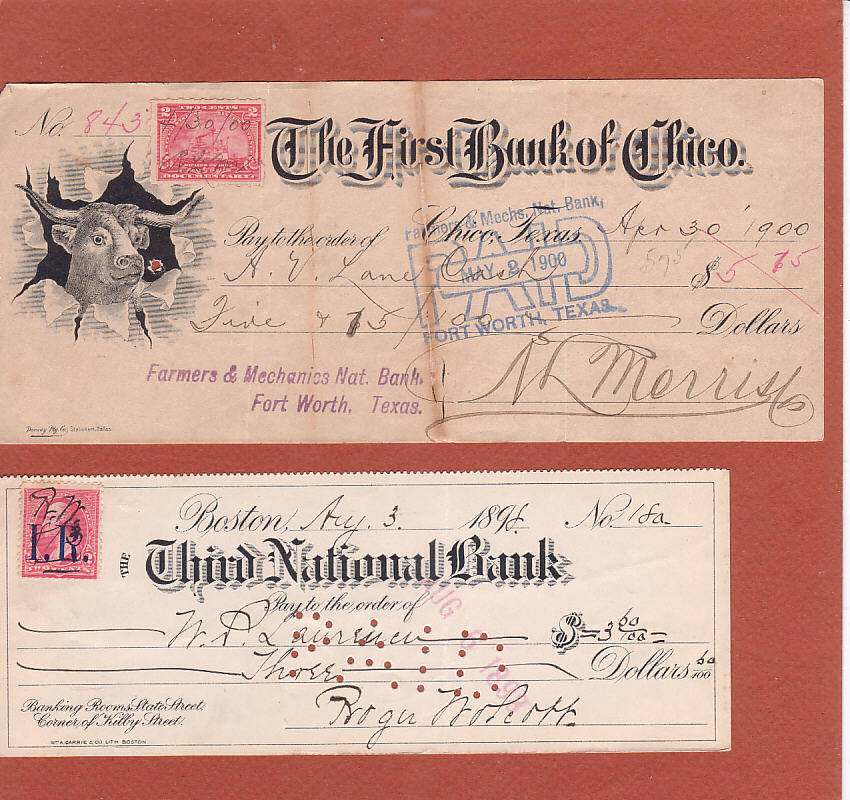 No. 843
TWO CENTS
2 2
4/30/00
DOCUMENTARY
The First Bank of Chico.
Farmers & Mechs. Nat. Bank,
PAID
MAY 2 1900
FORT WORTH, TEXAS.
Chico, Texas, Apr 30 1900
Pay to the order of
H. V. Lane Cash $5 75
575
Five + 75/100 Dollars
N L Morris
Farmers & Mechanics Nat. Bank,
Fort Worth, Texas.
Dorsey Ptg. Co., Stationers, Dallas.
I.R.
Boston, Aug. 3 1898. No. 182
THE Third National Bank
Pay to the order of
AUG 1898
W. P. Lawrence $ 3 60/100
Three Dollars 60/100
Banking Rooms, State Street,
Corner of Kilby Street.
Roger Wolcott
WM. A. CARRIE & CO. LITH. BOSTON